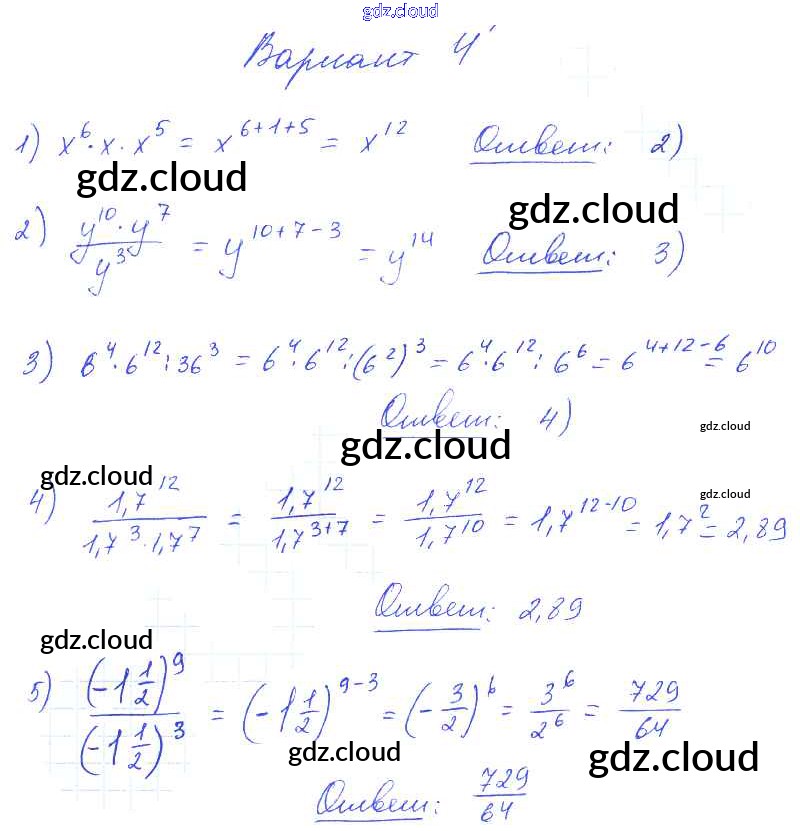 gdz.cloud
Вариант 4
1) x^6 · x · x^5 = x^{6+1+5} = x^{12} Ответ: 2)
gdz.cloud
gdz.cloud
2) \frac{y^{10} · y^7}{y^3} = y^{10+7-3} = y^{14} Ответ: 3)
3) 6^4 · 6^{12} : 36^3 = 6^4 · 6^{12} : (6^2)^3 = 6^4 · 6^{12} : 6^6 = 6^{4+12-6} = 6^{10}
Ответ: 4)
gdz.cloud
gdz.cloud
gdz.cloud
gdz.cloud
4) \frac{1,7^{12}}{1,7^3 · 1,7^7} = \frac{1,7^{12}}{1,7^{3+7}} = \frac{1,7^{12}}{1,7^{10}} = 1,7^{12-10} = 1,7^2 = 2,89
Ответ: 2,89
gdz.cloud
5) \frac{(-1\frac{1}{2})^9}{(-1\frac{1}{2})^3} = (-1\frac{1}{2})^{9-3} = (-\frac{3}{2})^6 = \frac{3^6}{2^6} = \frac{729}{64}
gdz.cloud
gdz.cloud
Ответ: \frac{729}{64}